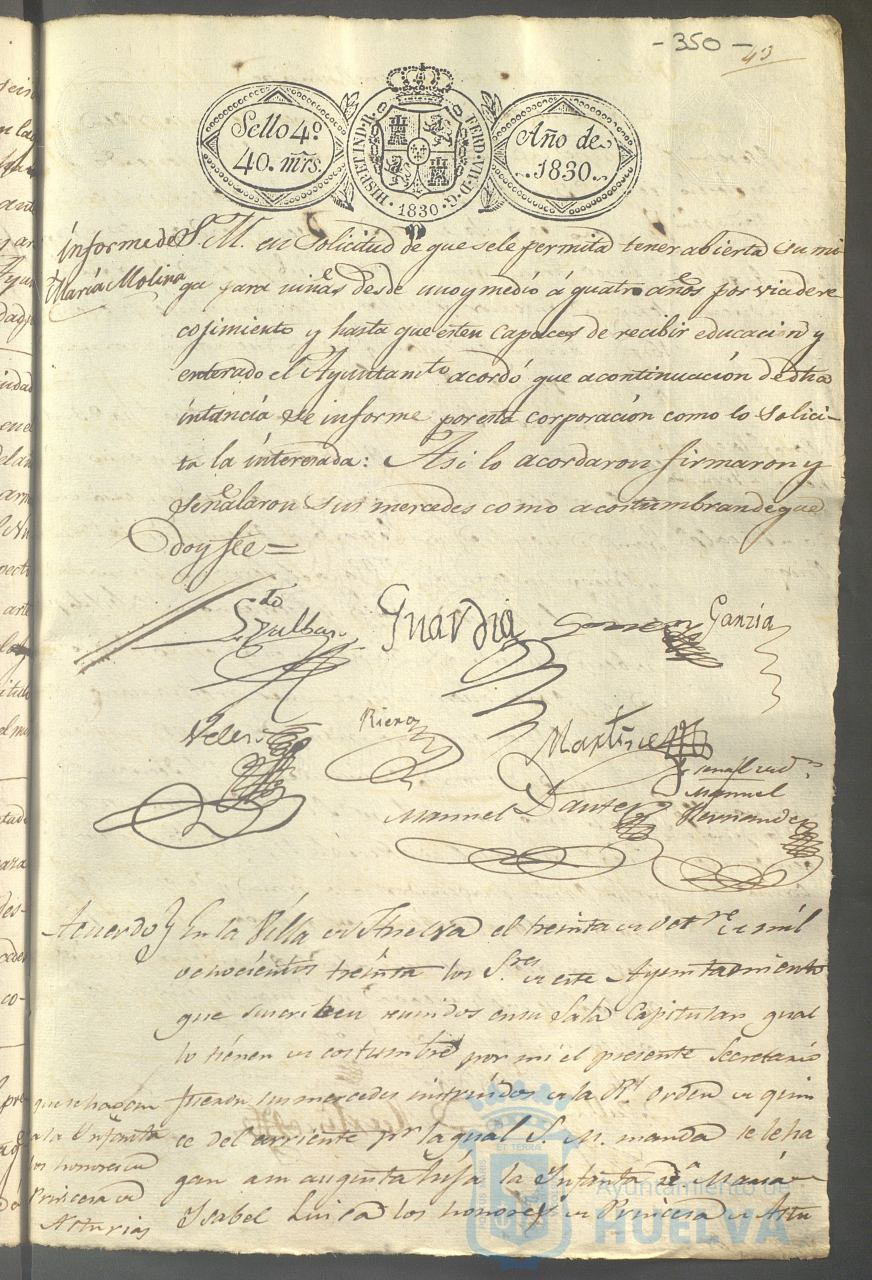 - 350 -
43
Sello 4º
40. mrs.
HISP. ET IND. R.
FERD. VII. D. G.
1830
Año de
1830.
informe de
María Molina
S. M. en Solicitud de que se le permita tener abierta su mi-
ga para niñas desde uno y medio á quatro años por via de re
cojimiento y hasta que esten capaces de recibir educacion y
enterado el Ayuntamto acordó que a continuación de dha
intancia se informe por esta corporación como lo solici-
ta la interesada: Asi lo acordaron firmaron y
señalaron sus mercedes como acostumbran de que
doy fee =
Guardia
Garzia
Riera
Martinez
Manuel Dante
Manuel
Hernandez
Acuerdo
En la Villa de Huelva el treinta de Octre de mil
ochocientos treinta los Sres de este Ayuntamiento
que suscriben reunidos en su Sala Capitular qual
lo tienen de costumbre por mi el presente Secretario
que se hagan
a la Infanta
los honores de
Princesa de
Asturias
fueron sus mercedes instruidos de la Rl orden de quin
ce del corriente pr la qual S. M. manda se le ha
gan a su augusta hija la Infanta Da María
Isabel Luisa los honores de Princesa de Astu
Ayuntamiento de
HUELVA